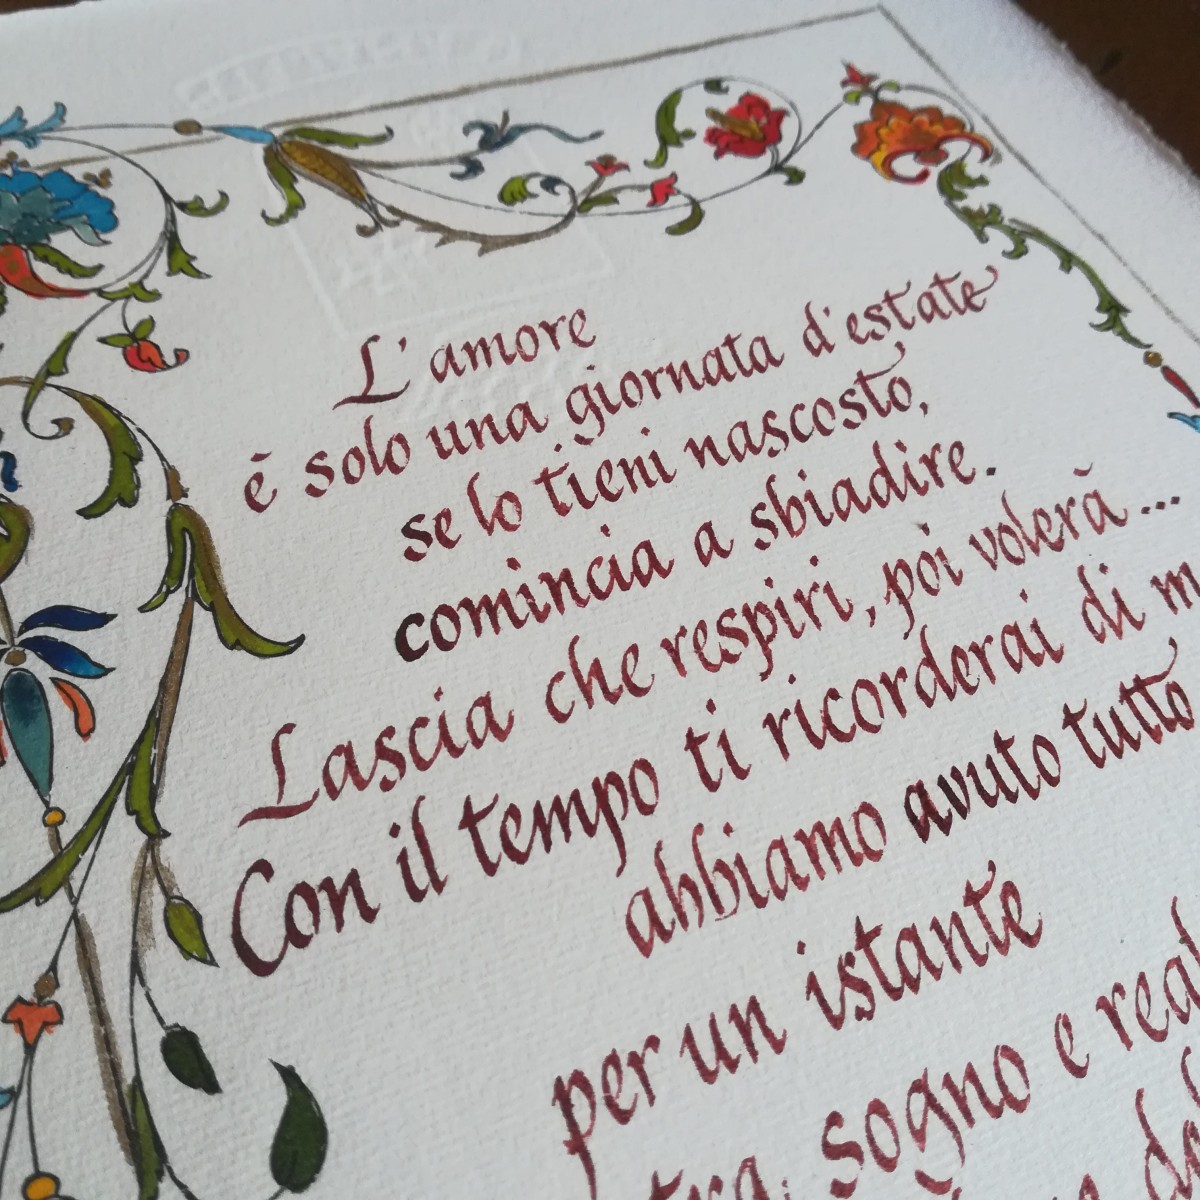 L'amore
è solo una giornata d'estate
se lo tieni nascosto,
comincia a sbiadire.
Lascia che respiri, poi volerà...
Con il tempo ti ricorderai di
abbiamo avuto tutto
per un istante
sogno e